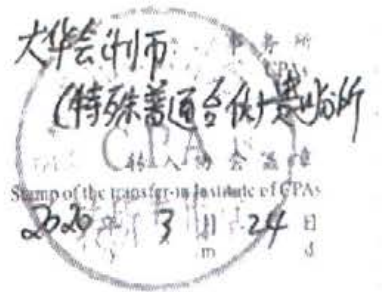 大华会计师 事务所
CPAs
(特殊普通合伙)
CPA
转入协会盖章
Stamp of the transfer-in Institute of CPAs
2020 年 3 月 24 日
y m d